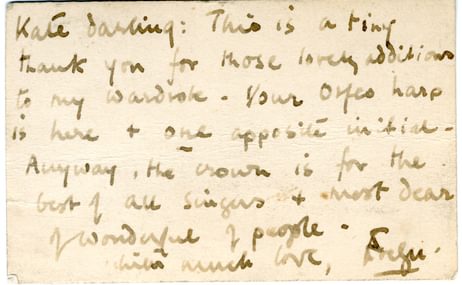 Kate darling: This is a tiny
thank you for those lovely additions
to my wardrobe - Your Orfeo harp
is here + one apposite initial -
Anyway, the crown is for the
best of all singers + most dear
of wonderful of people -
with much love,